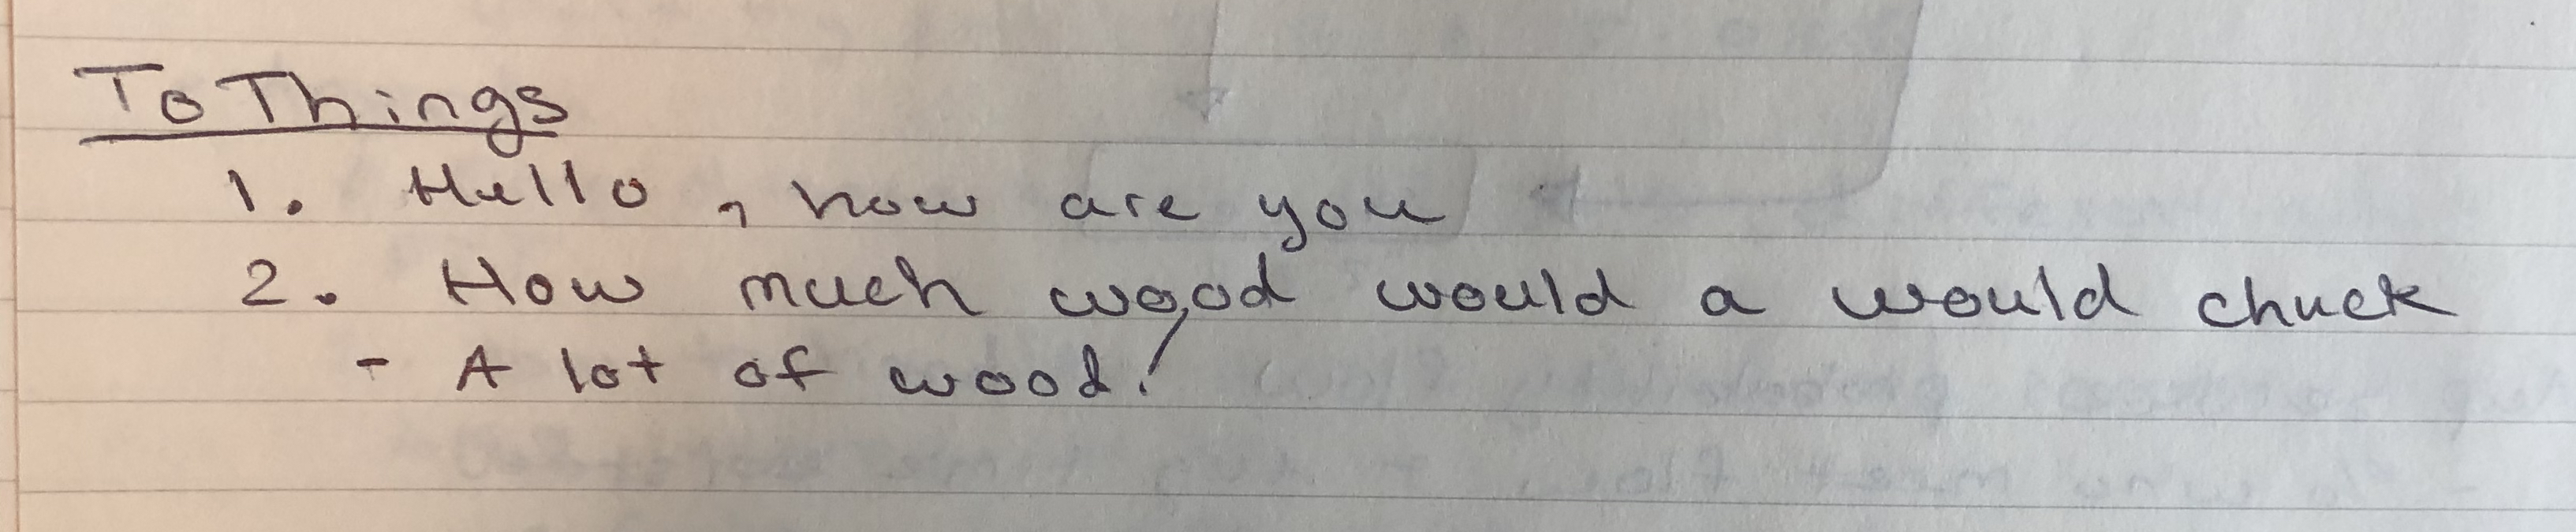 To Things
1. Hello, how are you
2. How much wood would a would chuck
- A lot of wood!